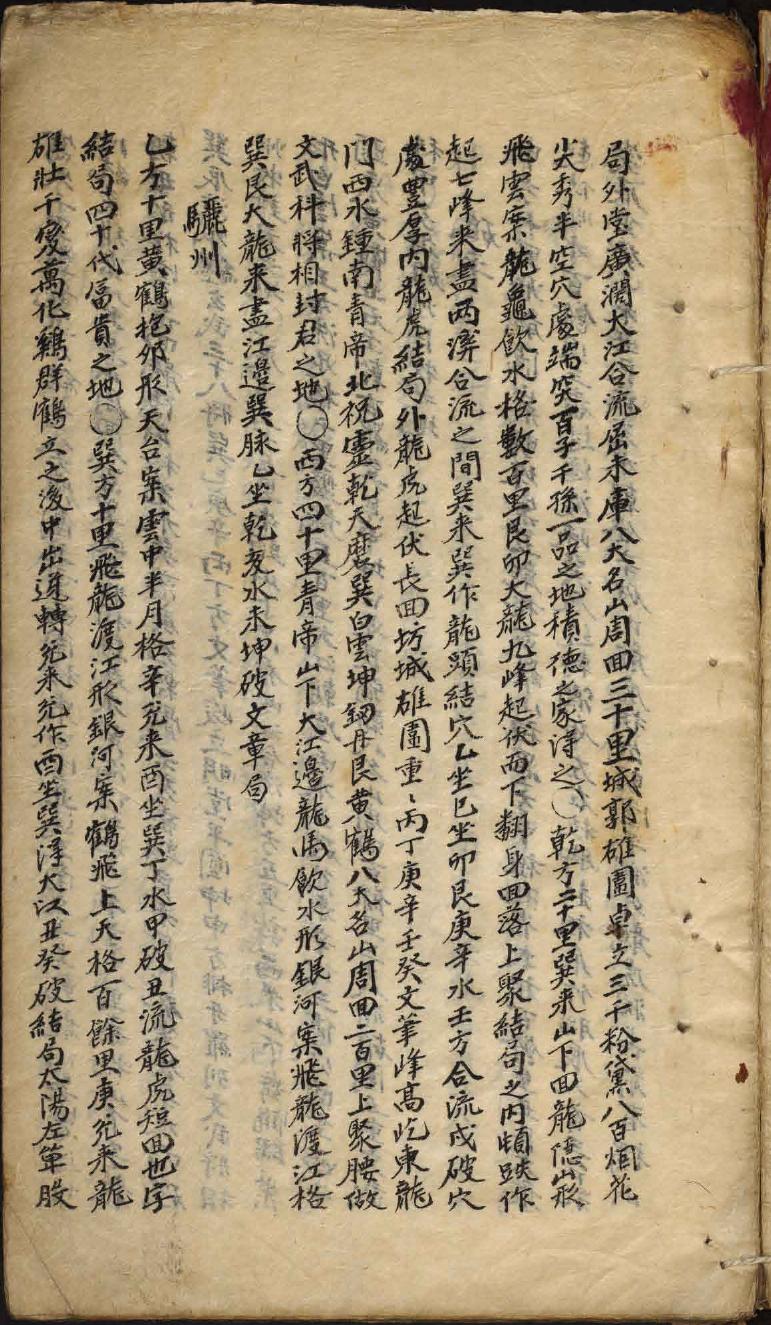 局外堂廣濶大江合流屈未庫八大名山周回三十里城郭雄圍卓立三千粉黛八百烟花
尖秀半空穴處端突百子千孫一品之地積德之家得之○乾方二十里巽來山下回龍隱山形
飛雲案龍龜飮水格數百里艮卯大龍九峰起伏而下翻身回落上聚結局之內頓跌作
起七峰來盡兩溪合流之間巽來巽作龍頭結穴乙坐巳坐卯艮庚辛水壬方合流戌破穴
處豊厚內龍虎結局外龍虎起伏長回坊城雄圍重〻丙丁庚辛壬癸文筆峰高屹東龍
門西水鍾南青帝北祝靈乾天磨巽白雲坤釰丹艮黃鶴八大名山周回二百里上聚腰做
文武科將相封君之地○西方四十里青帝山下大江邊龍馬飮水形銀河案飛龍渡江格
巽艮大龍來盡江邊巽脉乙坐乾亥水未坤破文章局
驪州
乙方十里黃鶴抱卵形天台案雲中半月格辛兊來酉坐巽丁水甲破丑流龍虎短回也字
結局四十代富貴之地○巽方十里飛龍渡江形銀河案鶴飛上天格百餘里庚兊來龍
雄壯千変萬化鷄群鶴立之後中出逆轉兊來兊作酉坐巽浮大江丑癸破結局太陽左單股